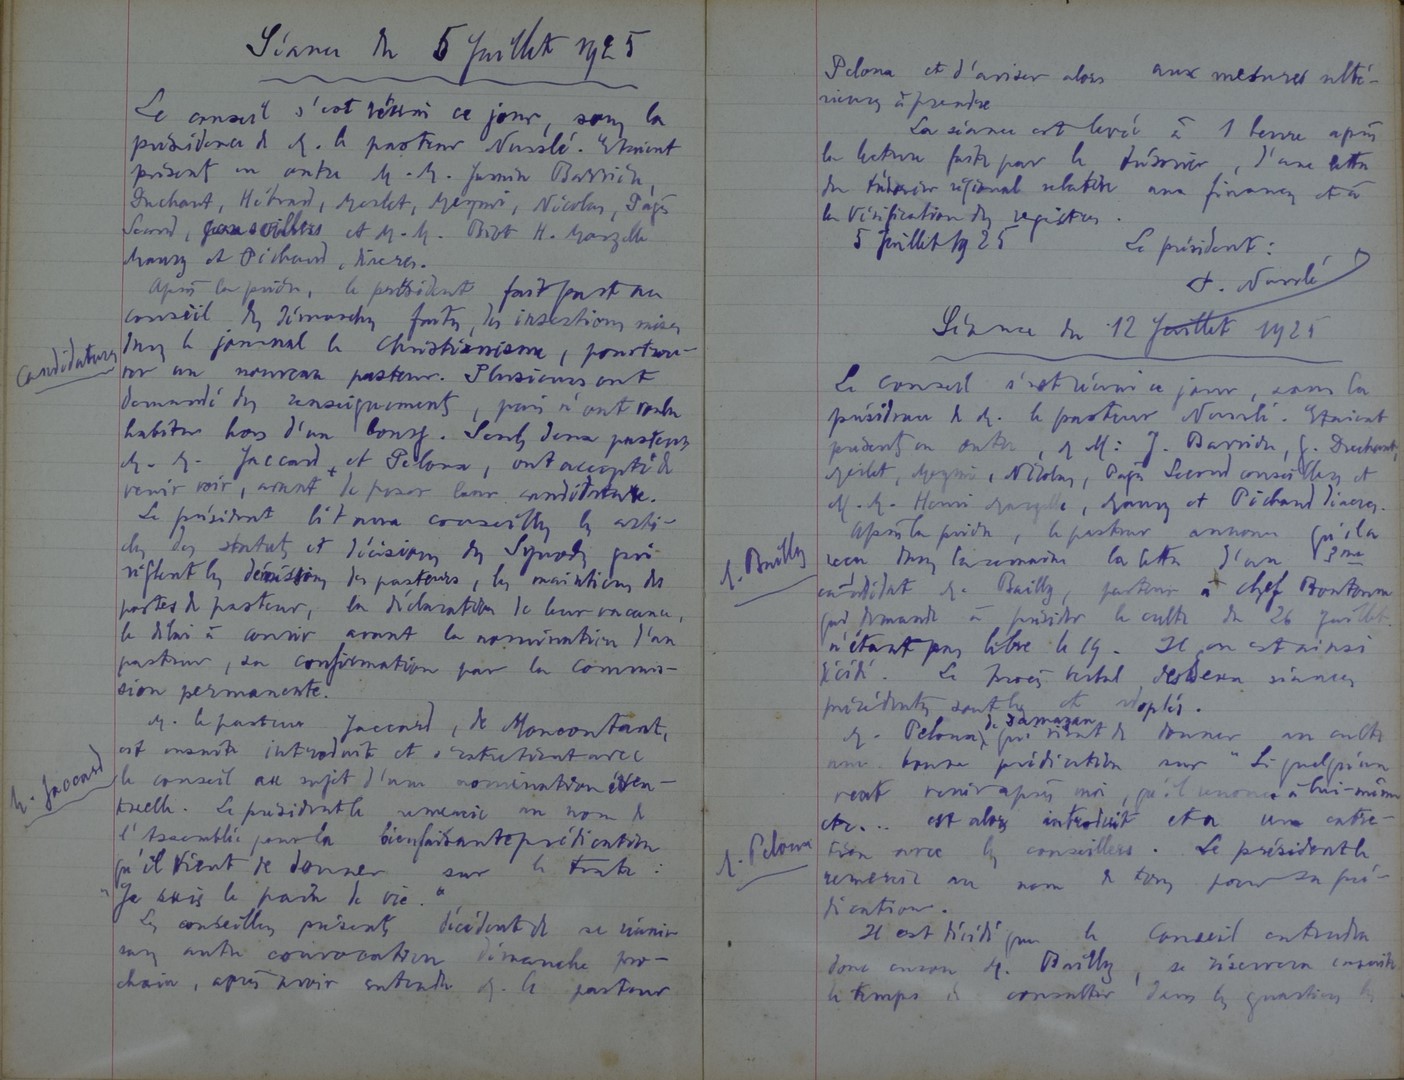 Séance du 5 Juillet 1925
Le conseil s'est réuni ce jour, sous la
présidence de M. le pasteur Nusslé. Etaient
présent en outre M. M. Jasmin Barrière,
Duchant, Hébrard, Merlet, Meyni, Nicolas, Pagès
Secord, conseillers et M. M. Biot H. Marzelle
Maury et Pichaud, diacres.
Après la prière, le président fait part au
conseil des démarches faites, des insertions mises
Candidatures
dans le journal le Christianisme, pour trou-
ver un nouveau pasteur. Plusieurs ont
demandé des renseignements, puis n'ont voulu
habiter hors d'un bourg. Seuls deux pasteurs
M. M. Jaccard et Pelona, ont accepté de
venir voir, avant de poser leur candidature.
Le président lit aux conseillers les arti-
cles des statuts et décisions des Synodes qui
règlent les démissions des pasteurs, les maintiens des
postes de pasteur, la déclaration de leur vacance,
le délai à courir avant la nomination d'un
pasteur, sa confirmation par la Commis-
sion permanente.
M. Jaccard
M. le pasteur Jaccard, de Moncoutant,
est ensuite introduit et s'entretient avec
le conseil au sujet d'une nomination éven-
tuelle. Le président le remercie au nom de
l'Assemblée pour la bienfaisante prédication
qu'il vient de donner sur le texte :
"Je suis le pain de vie."
Les conseillers présents décident de se réunir
sans autre convocation dimanche pro-
chain, après avoir entendu M. le pasteur
Pelona et d'aviser alors aux mesures ulté-
rieures à prendre
La séance est levée à 1 heure après
la lecture faite par le trésorier, d'une lettre
du trésorier régional relative aux finances et à
la vérification des registres.
5 Juillet 1925 Le président :
Nusslé
Séance du 12 Juillet 1925
Le Conseil s'est réuni ce jour, sous la
présidence de M. le pasteur Nusslé. Etaient
présents en outre, M M: J. Barrière, J. Duchant,
Merlet, Meyni, Nicolas, Pagès Secord conseillers et
M. M. Henri Marzelle, Maury et Pichaud diacres.
M. Bailly
Après la prière, le pasteur annonce qu'il a
reçu dans la semaine la lettre d'un 3me
candidat M. Bailly, pasteur à Chef Boutonne
qui demande à présider le culte du 26 Juillet.
n'étant pas libre le 19. Il en est ainsi
décidé. Le procès verbal des deux séances
précédentes sont lus et adoptés.
M. Pelona
M. Pelona, de Damazan qui vient de donner au culte
une bonne prédication sur "Si quelqu'un
veut venir après moi, qu'il renonce à lui-même
etc... est alors introduit et a un entre-
tien avec les conseillers. Le président le
remercie au nom de tous pour sa pré-
dication.
Il est décidé que le Conseil entendra
donc encore M. Bailly, se réservera ensuite
le temps de consulter dans les quartiers les